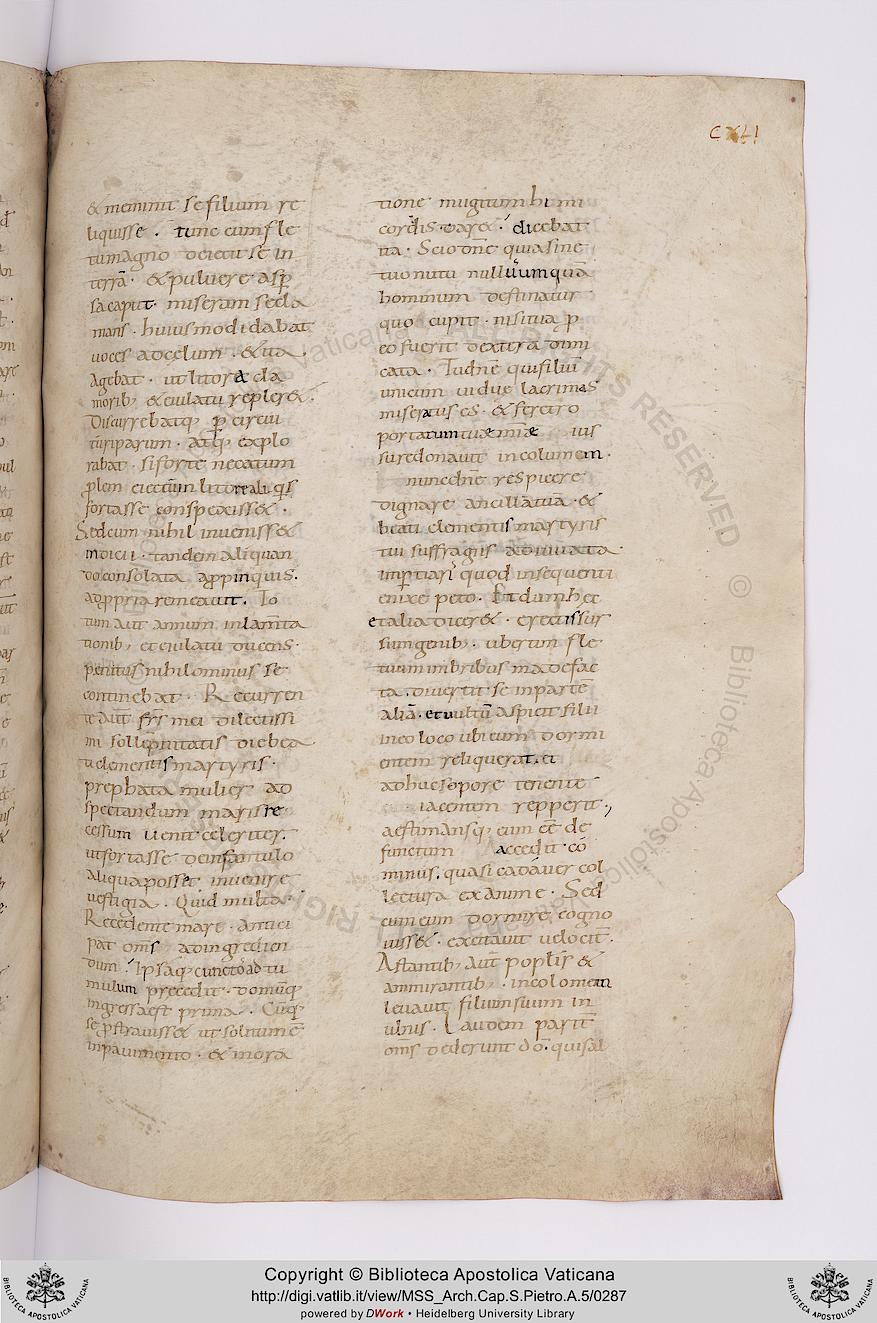 CXLI
& meminit se filium re
liquisse . tunc cum fle
tu magno deiecit se in
terrā . & pulvere aspꝑ
sa caput . miseram se cla
mans . huiusmodi dabat
uoces ad celum . & ita
Agebat . ut litora cla
morib; & eiulatu repler& .
Discurrebatq; ꝑ circui
tū riparum . atq; explo
rabat . si forte necatum
ꝓlem eiectum litoreali qs
fortasse conspexiss& .
Sed cum nihil inueniss&
indicii . tandem aliquan
do consolata a ꝓpinquis .
ad ꝓpria remeauit . To
tum aut annum in lam̄ta
tionib; et eiulatu ducens .
penitus nihilominus se
continebat . Recurren
te aūt frs mei dilectissi
mi sollēpnitatis die bea
ti clementis martyris .
prephata mulier ad
spectandum maris re
cessum uenit celeriter .
ut fortasse de infantulo
Aliqua posset inuenire
uestigia . Quid multa .
Recedente mare . Antici
pat om̄s ad ingredien
dum . Ipsaq; cuncto ad tu
mulum precedit . domūq;
ingressa est prima . Cūq;
se ꝓstrauiss& ut solitum ē
in pauimento . & mora
tione mugitum hi mi
cordis dar& . dicebat
ita . Scio dn̄e quia sine
tuo nutu nullus umquā
hominum destinatur
quo cupit . nisi tua ꝑ
eo fuerit dextera dimi
cata . Tu dn̄e qui filiū
unicum uidue lacrimas
miseratus es . & feretro
portatum tuae m̄ie ius
su redonauit incolumem .
nunc dn̄e respicere
dignare ancillā tuā . &
beati clementis martyris
tui suffragiis adiuuata .
impertiari quod insequenti
enixe peto . Et dum h&c
et alia dicer& . erectis sur
sum genib; . ubertim fle
tuum imbribus madefac
ta . diuertit se in partē
aliā . et uultū aspicit filii
in eo loco ubi eum dormi
entem reliquerat . et
adhuc sopore tenente
iacentem repperit .,
aestimansq; eum ēē de
functum accedit . cō
minus . quasi cadauer col
lectura exanime . Sed
cum eum dormire cogno
uiss& . excitauit uelocit .
Astantib; aūt poplis &
ammirantib; . incolomem
leuauit filium suum in
ulnis . Laudem parit̄
om̄s dederunt dō . qui sal
Copyright © Biblioteca Apostolica Vaticana
http://digi.vatlib.it/view/MSS_Arch.Cap.S.Pietro.A.5/0287
powered by DWork • Heidelberg University Library